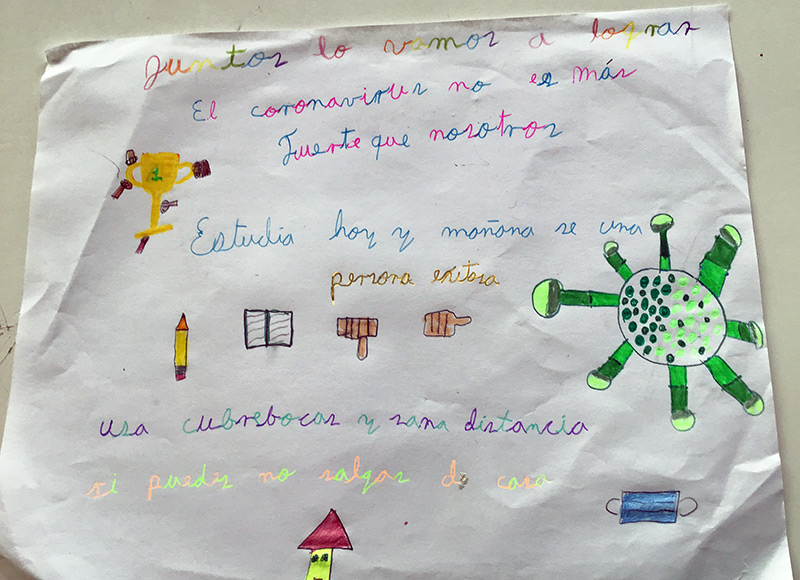 Juntos lo vamos a lograr
El coronavirus no es más
Fuerte que nosotros
1
Estudia hoy y mañana se una
persona exitosa
usa cubrebocas y sana distancia
si puedes no salgas de casa